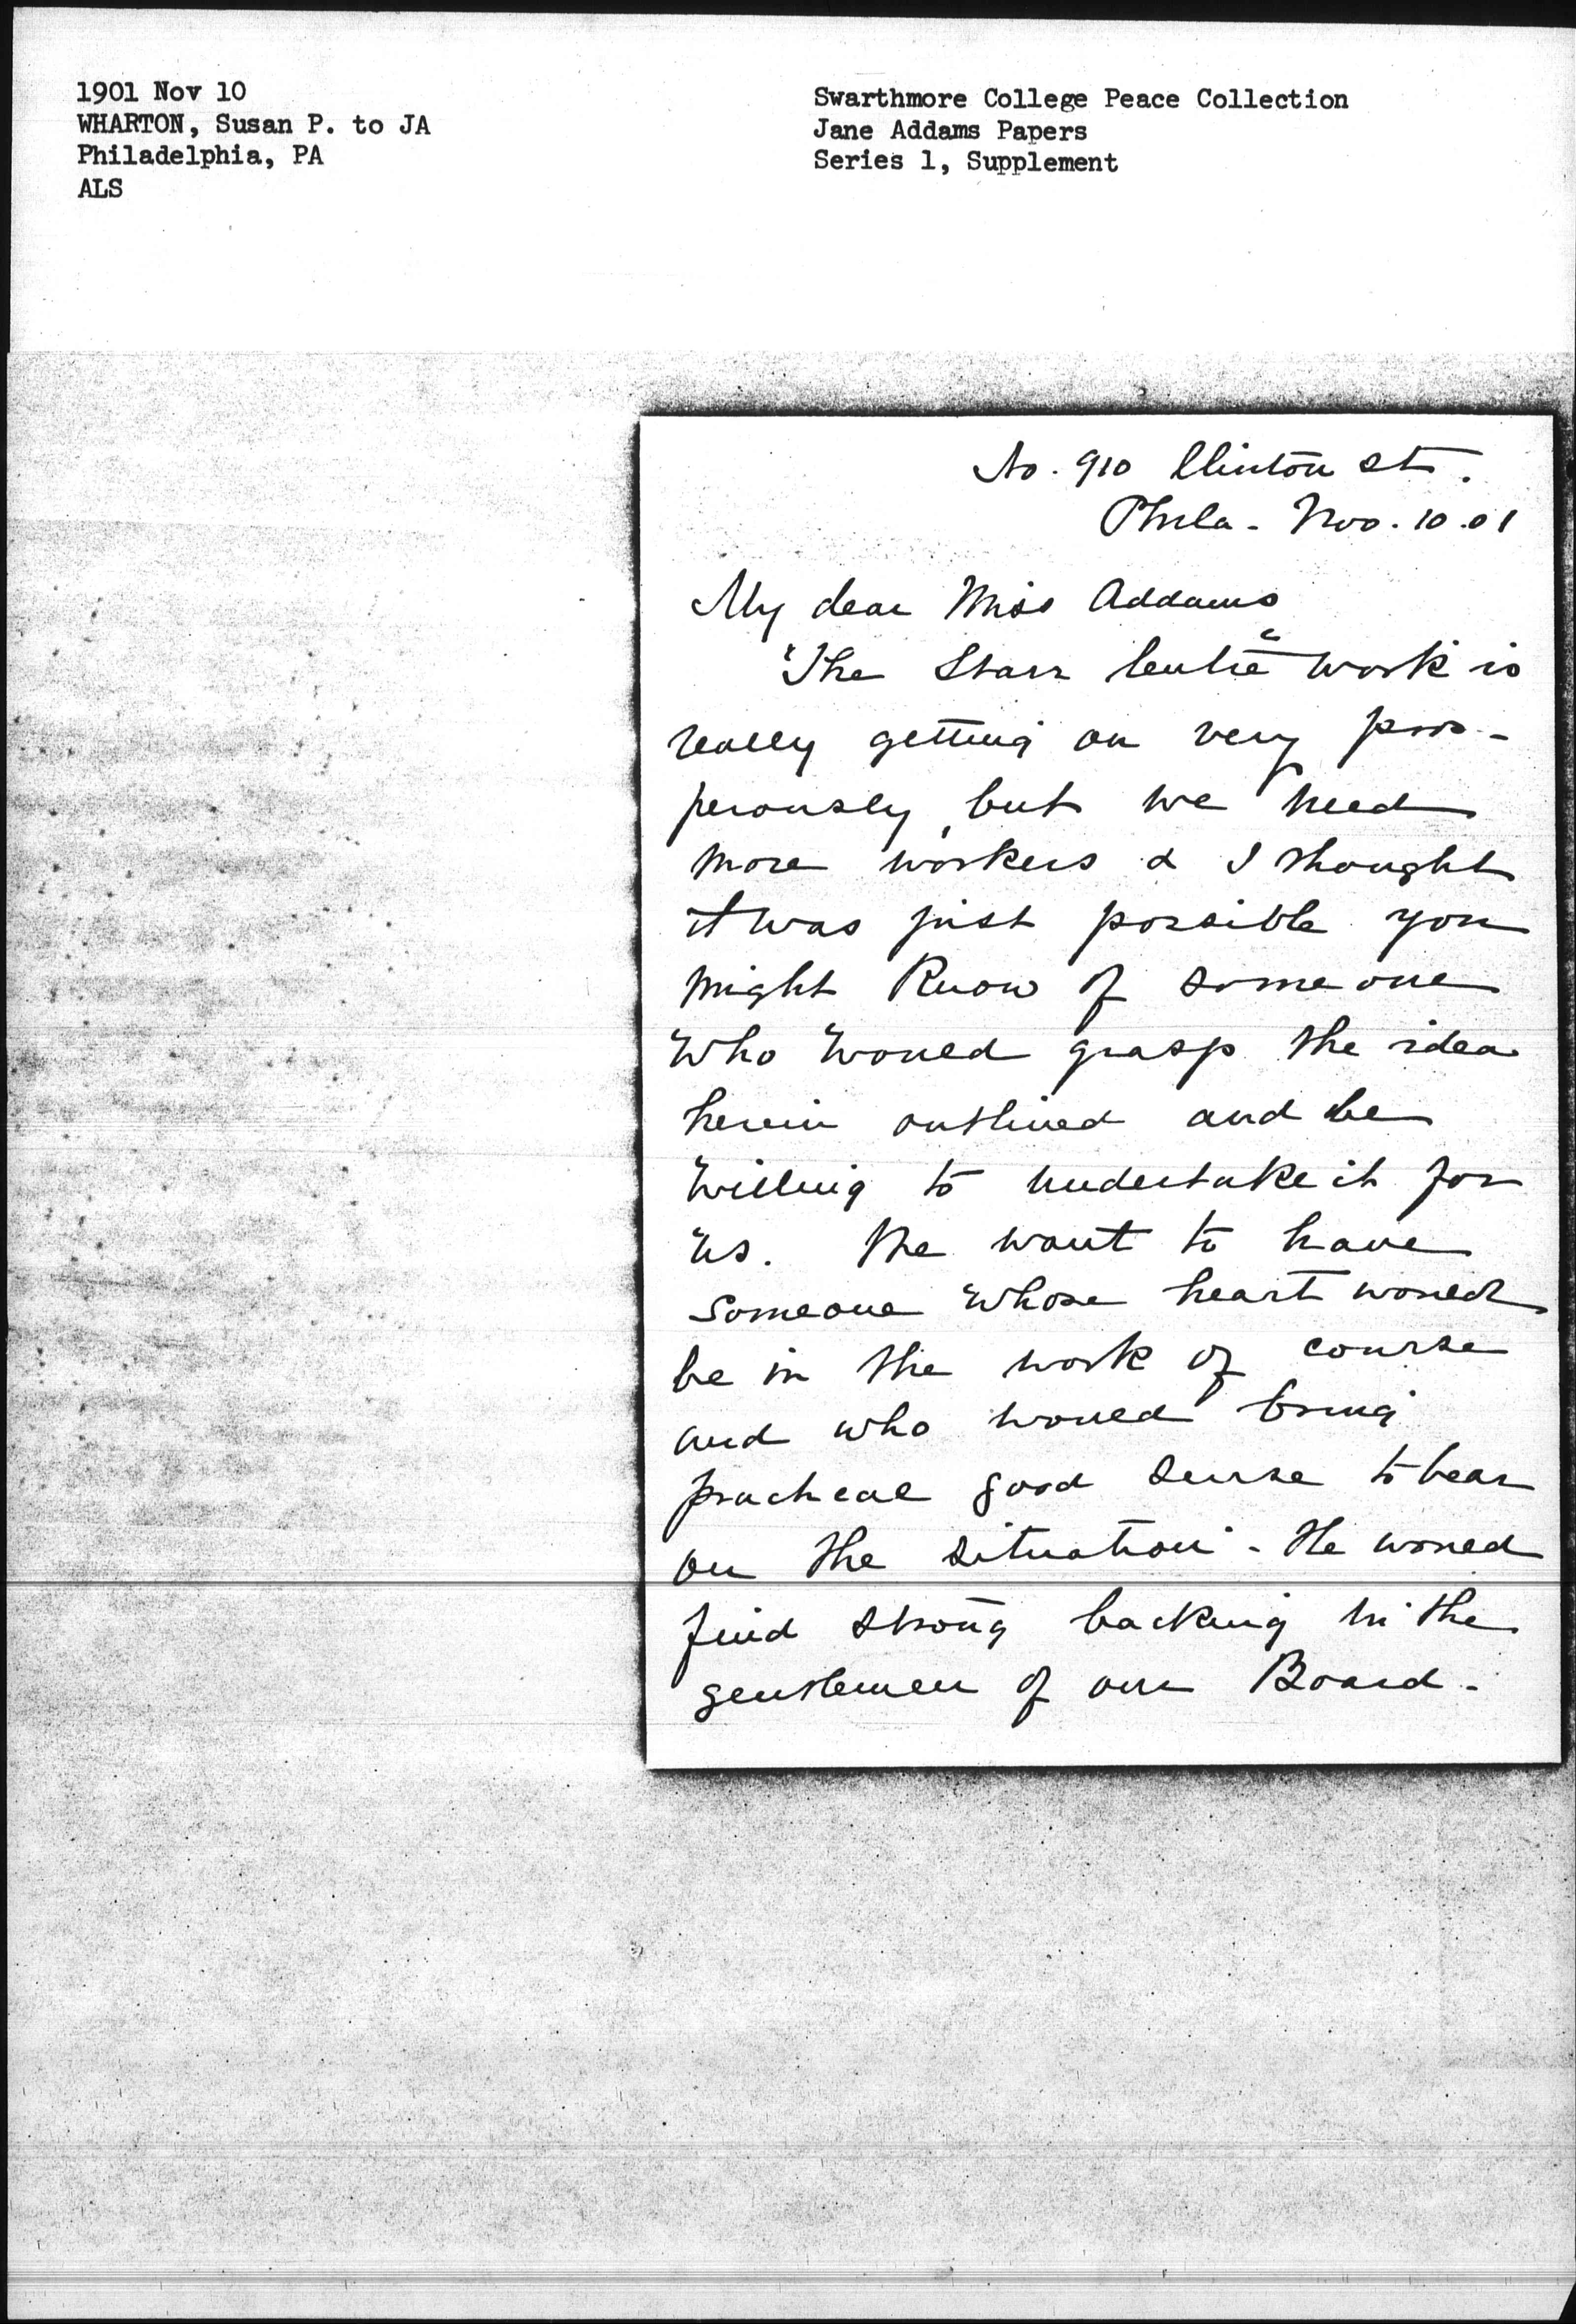 1901 Nov 10
WHARTON, Susan P. to JA
Philadelphia, PA
ALS
Swarthmore College Peace Collection
Jane Addams Papers
Series 1, Supplement
No. 910 Clinton St.
Phila - Nov. 10. 01
My dear Miss Addams
"The Starr Centre" work is
really getting on very pros-
perously, but we need
more workers & I thought
it was just possible you
might know of some one
who would grasp the idea
herein outlined and be
willing to undertake it for
us. We want to have
someone whose heart would
be in the work of course
and who would bring
practical good sense to bear
on the situation - He would
find strong backing in the
gentlemen of our Board -